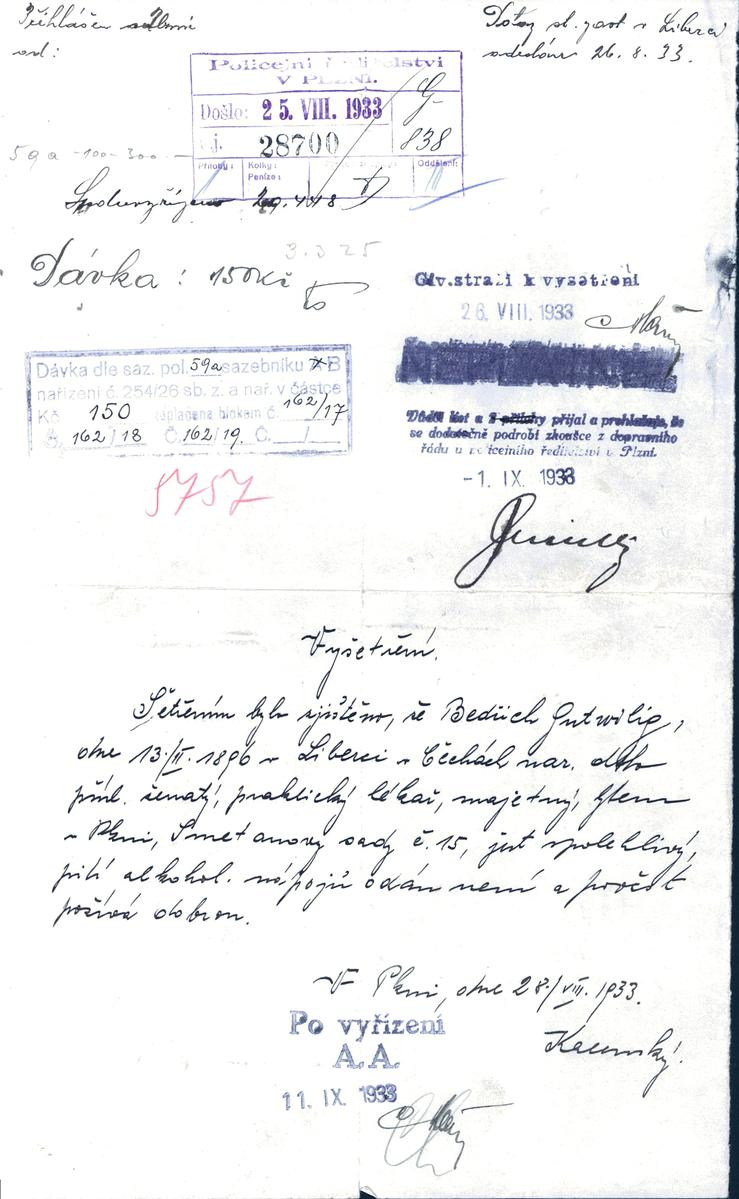 Přihlášen
od:
Dotaz st. zast. v Liberci
odeslán 26. 8. 33.
Policejní ředitelství
V PLZNI.
Došlo: 25. VIII. 1933
G-
838
č. j. 28700
Přílohy: Kolky: Peníze: Oddělení:
59a -100-300.-
3.3 25
Dávka: 150 Kč
Giv.stráži k vyšetření
26. VIII. 1933
Dávka dle saz. pol. 59a sazebníku B
nařízení č. 254/26 sb. z. a nař. v částce
Kč 150 zaplacena blokem č. 162/17
Č. 162/18 Č. 162/19. Č. /
přílohy přijal a prohlašuje, že
se dodatečně podrobí zkoušce z dopravního
řádu u policejního ředitelství v Plzni.
-1. IX. 1933
5757
Vyšetření.
Šetřením bylo zjištěno, že Bedřich Gutwilig,
dne 13./II. 1896 v Liberci v Čechách nar. dtto
přísl. ženatý, praktický lékař, majetný, bytem
v Plzni, Smetanovy sady č. 15, jest spolehlivý,
pití alkohol. nápojů oddán není a pověst
požívá dobrou.
V Plzni, dne 28./VIII. 1933.
Po vyřízení
A.A.
11. IX. 1933